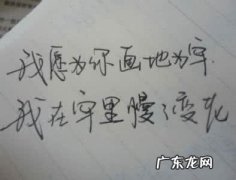 我愿为你画地为牢.
我在牢里慢慢变老
广东龙网